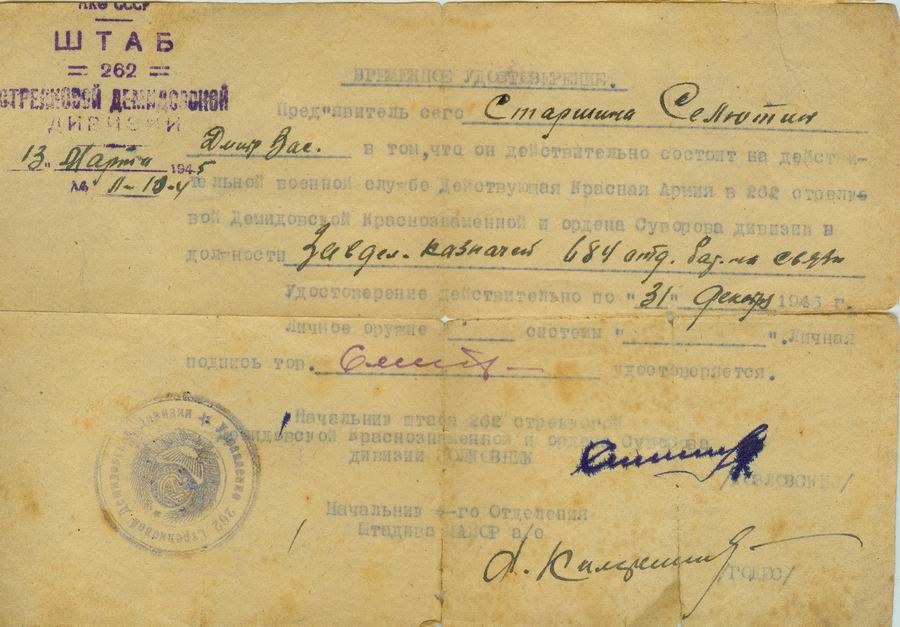 НКО СССР
ШТАБ
= 262 =
СТРЕЛКОВОЙ ДЕМИДОВСКОЙ
ДИВИЗИИ
13. Марта 1945
№ 11-10-4
ВРЕМЕННОЕ УДОСТОВЕРЕНИЕ.
Пред"явитель сего Старшина Селютин
Дмитр Вас. в том, что он действительно состоит на действи-
тельной военной службе Действующая Красная Армия в 262 стрелко
вой Демидовской Краснознаменной и ордена Суворова дивизии в
должности Завдел. казначей 684 отд. бат-на связи
Удостоверение действительно по "31" декабр 1945 г.
Личное оружие системы " ". Личная
подпись тов. удостоверяется.
Начальник штаба 262 стрелковой
Демидовской Краснознаменной и ордена Суворова
дивизии ПОЛКОВНИК
/КОЗЛОВСКИЙ/
Начальник 4-го Отделения
Штадива МАЙОР а/с
Управление 262 Стрелковой Демидовской дивизии